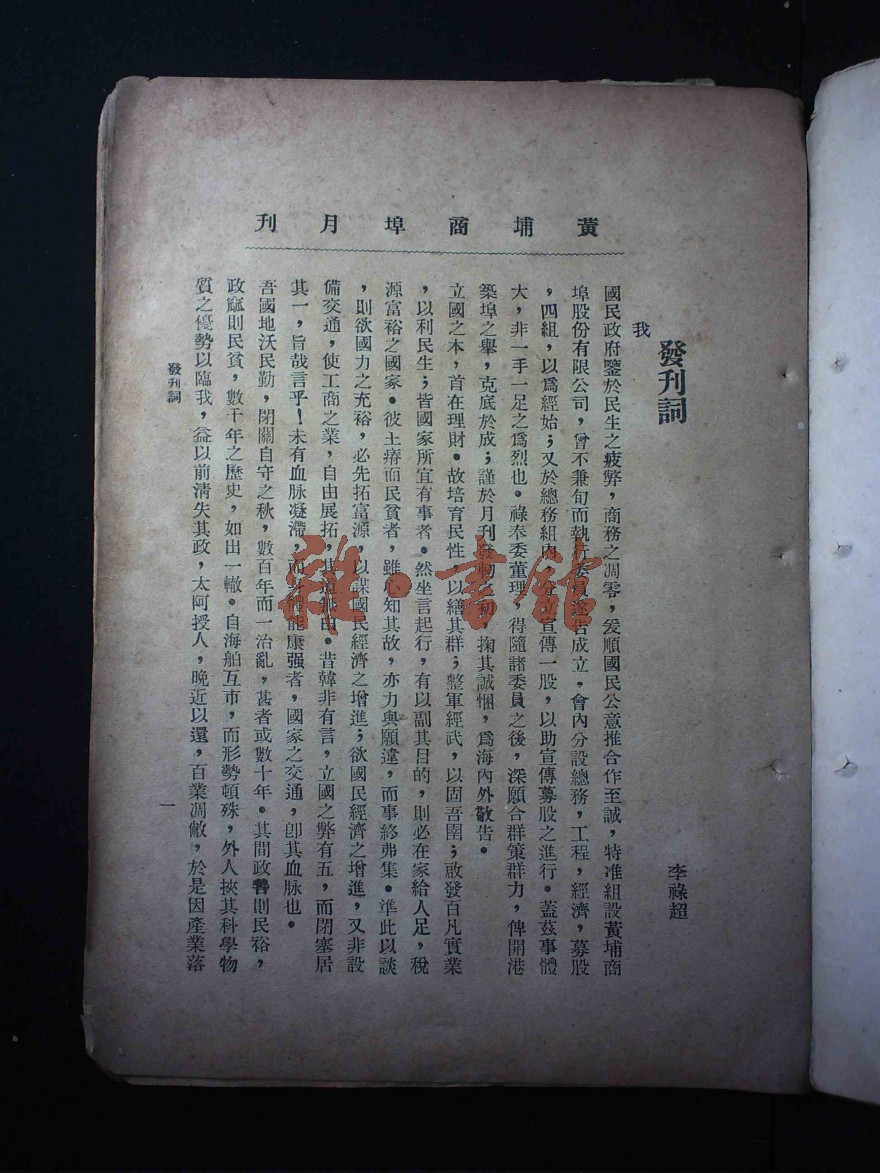 黃埔商埠月刊
發刊詞
李祿超
我
國民政府鑒於民生之疲弊，商務之凋零，爰順國民公意推合作至誠，特准組設黃埔商
埠股份有限公司，曾不兼旬而執行委員遂告成立，會內分設總務，工程，經濟，募股
，四組，以爲經始；又於總務組內，宣傳一股，以助宣傳募股之進行。蓋茲事體
大，非一手一足之爲烈也。祿奉委董理，得隨諸委員之後，深願合群策群力，俾開港
築埠之舉，克底於成；謹於月刊發軔，掬其誠悃，爲海內外敬告。
立國之本，首在理財。故培育民性，以繕其群；整軍經武，以固吾圉；啟發百凡實業
，以利民生；皆國家所宜有事者。然坐言起行，有以副其目的，則必在家給人足，稅
源富裕之國家。彼土瘠而民貧者，雖心知其故，亦力與願違，而事終弗集。準此以談
，則欲國力之充裕，必先拓富源，以謀國民經濟之增進；欲國民經濟之增進，又非設
備交通，使工商之業，自由展拓，其道無由。昔韓非有言，立國之弊有五，而閉塞居
其一，旨哉言乎！未有血脉凝滯，而身體能康强者，國家之交通，卽其血脉也。
吾國地沃民勤，閉關自守之秋，數百年而一治亂，甚者或數十年。其間政善則民裕，
政窳則民貧，數千年之歷史，如出一轍。自海舶互市，而形勢頓殊，外人挾其科學物
質之優勢以臨我，益以前淸失其政，太阿授人，晚近以還，百業凋敝，於是因產業落
發刊詞
一
雜·書館